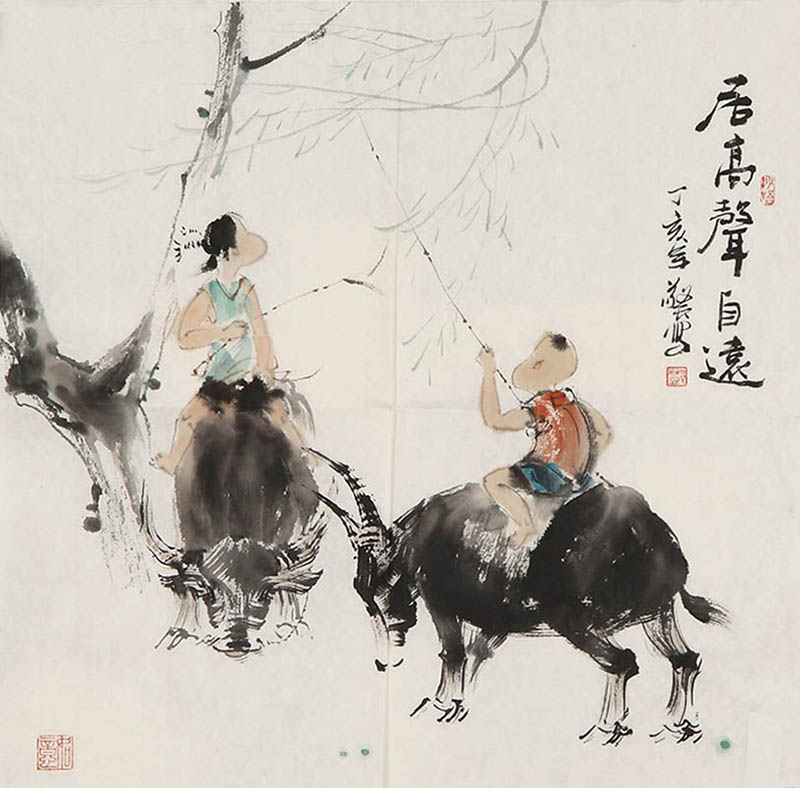 居高聲自遠
丁亥年